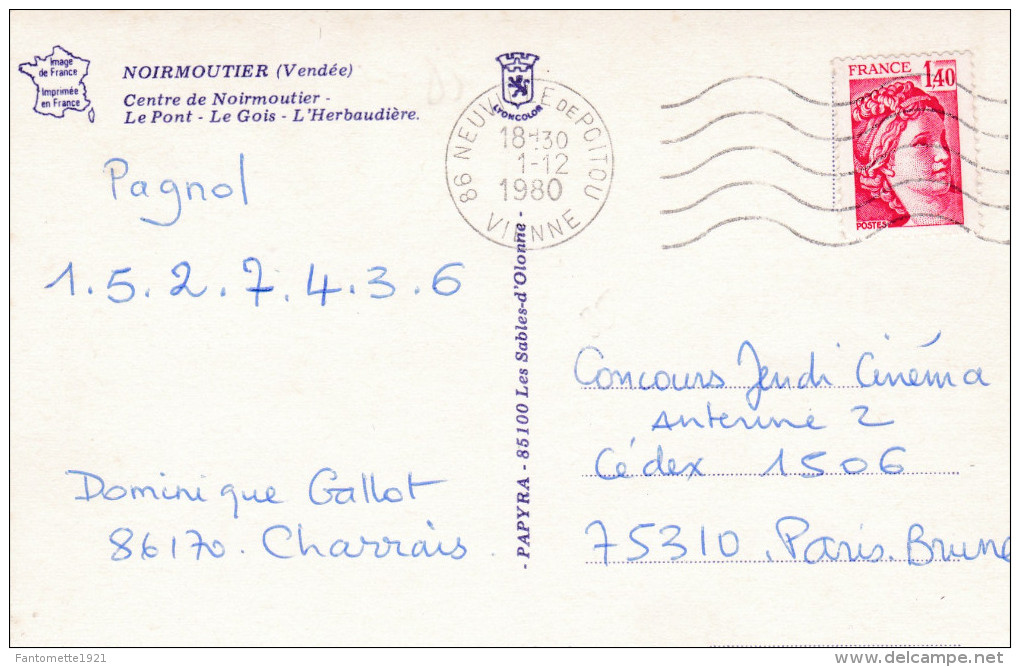 Image
de France
Imprimée
en France
NOIRMOUTIER (Vendée)
Centre de Noirmoutier -
Le Pont - Le Gois - L'Herbaudière.
LYONCOLOR
86 NEUVILLE DE POITOU
18H30
1-12
1980
VIENNE
FRANCE
1,40
POSTES
Pagnol
1.5.2.7.4.3.6
Dominique Gallot
86170. Charrais
- PAPYRA - 85100 Les Sables-d'Olonne -
Concours Jeudi Cinéma
Antenne 2
Cédex 1506
75310. Paris. Brune
Fantomette1921
delcampe.net